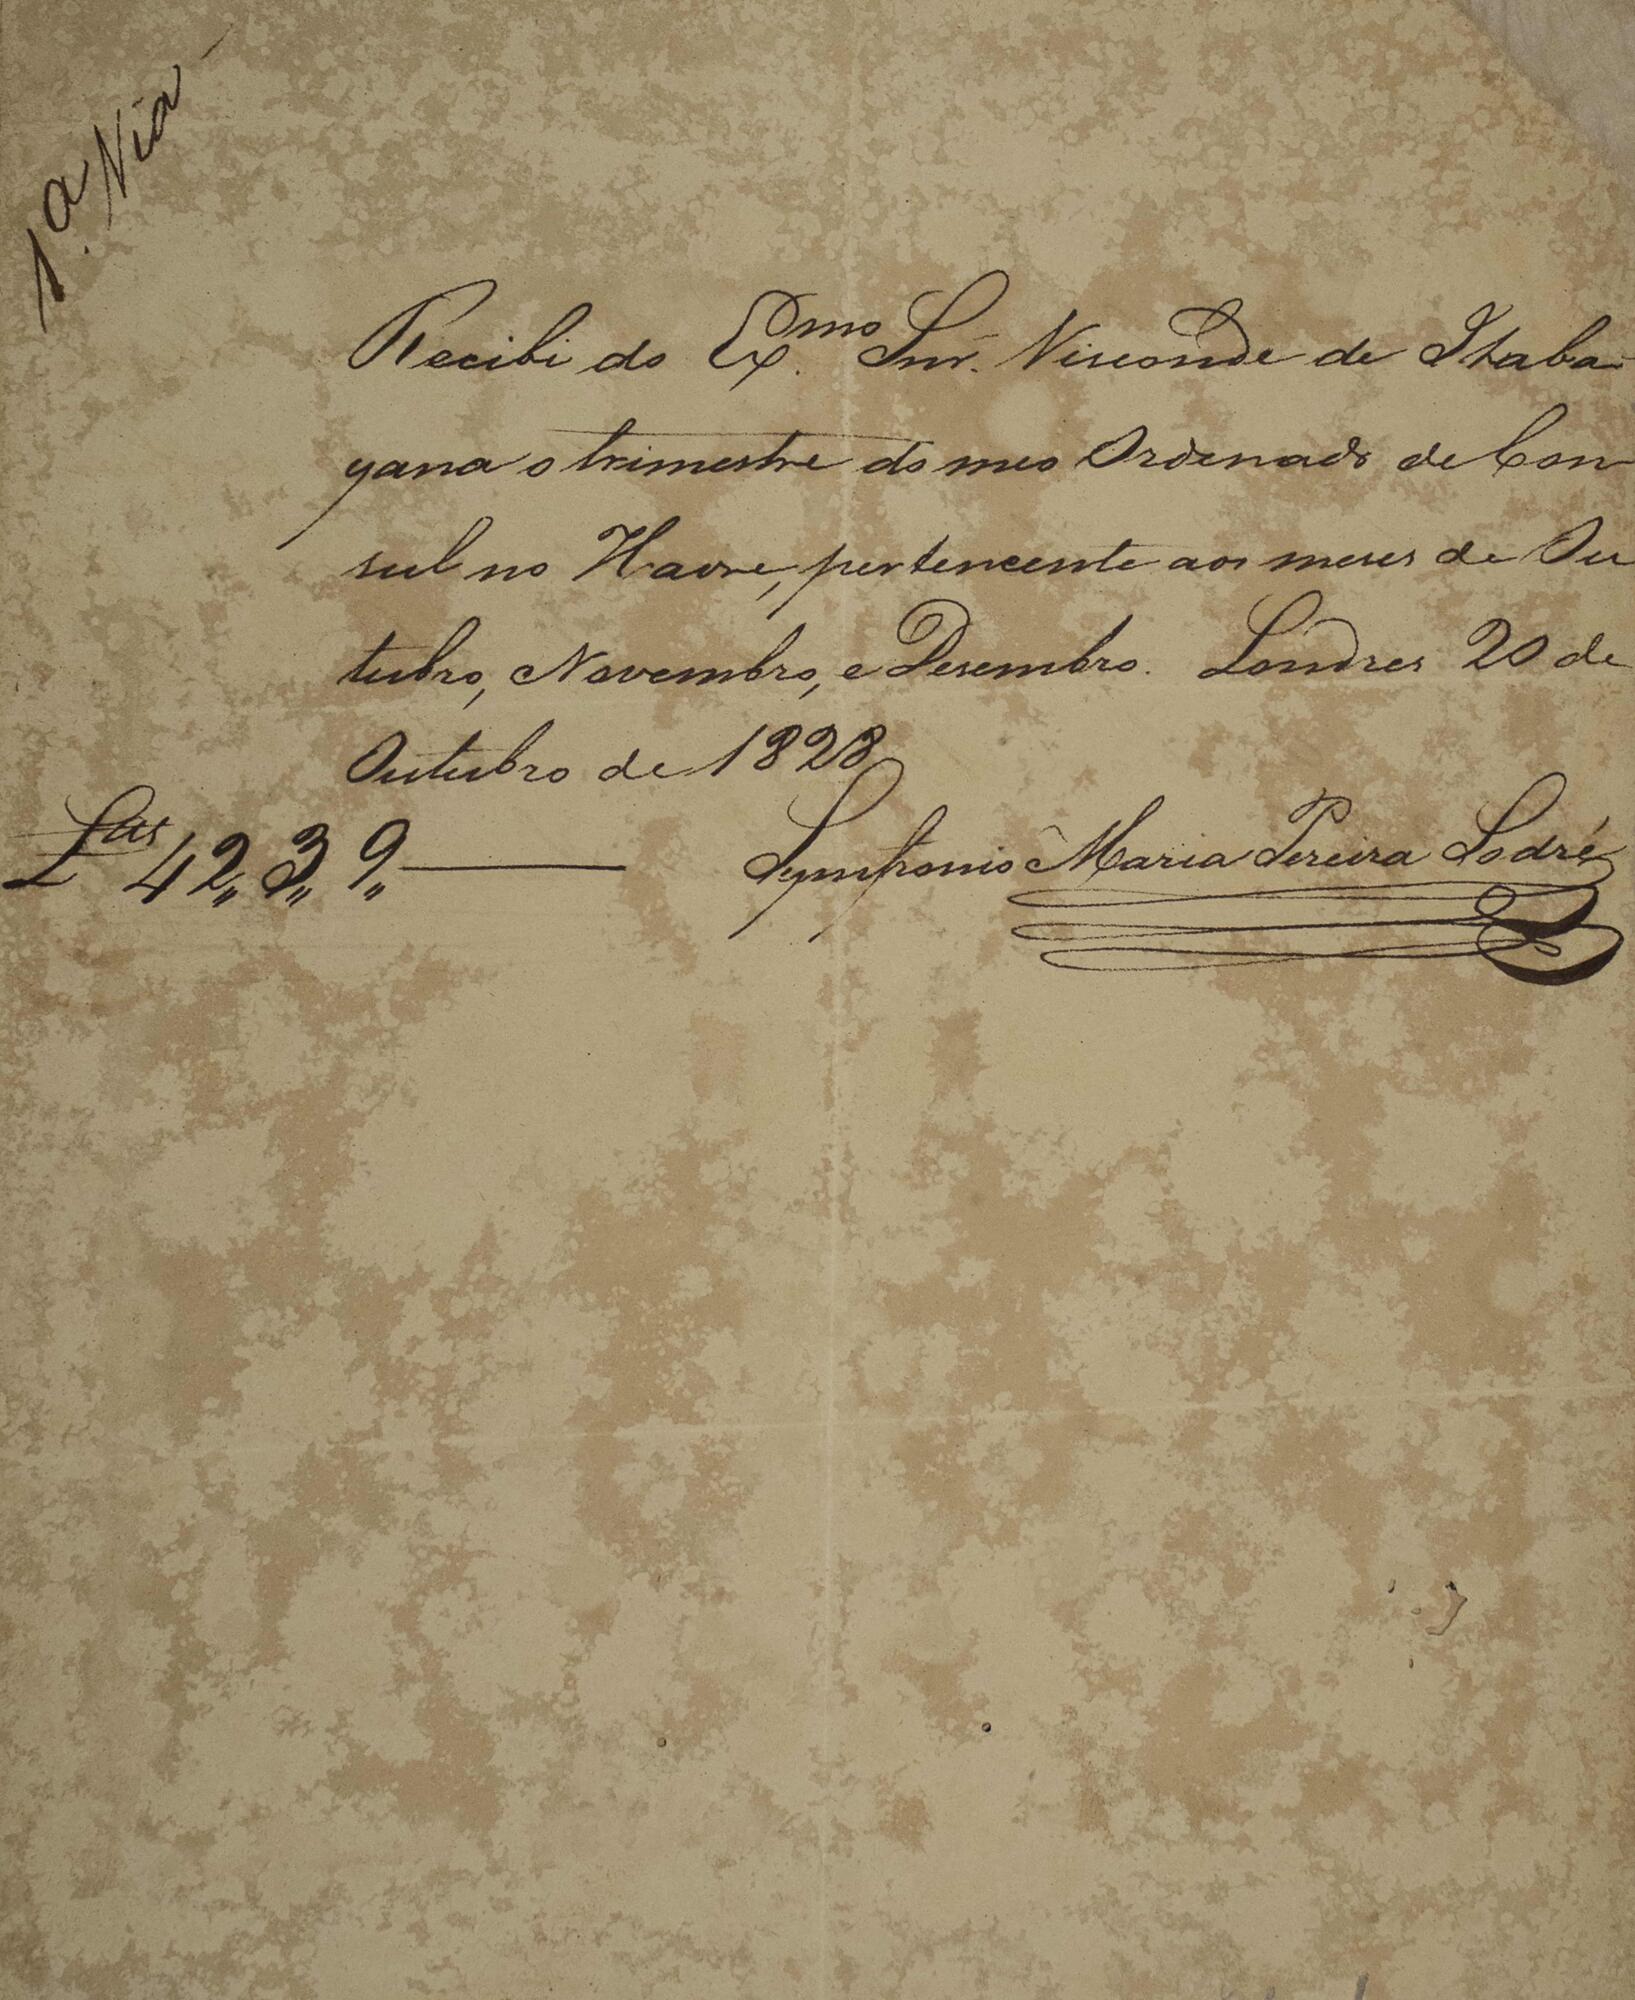 1.ª Via
Recibi do Ex.mo Snr. Visconde de Itaba-
yana o trimestre do meo Ordenado de Con-
sul no Havre, pertencente aos meses de Ou
tubro, Novembro, e Desembro. Londres 20 de
Outubro de 1828
L.as 42,, 3,, 9,, Symfronio Maria Pereira Sodré